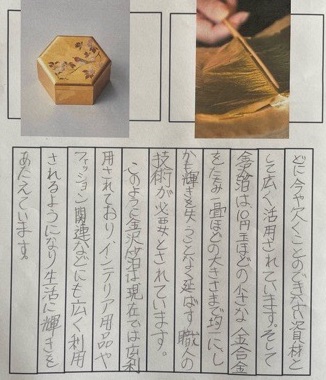 どに今や欠くことのできない資材と
して広く活用されています。そして
金箔は10円玉ほどの小さな金合金
をたたみ一畳ほどの大きさまで均一にし
かも輝きを失うことなく延ばす職人の
技術が必要とされています。
このように金沢箔は現在では
用されており、インテリア用品や
ファッション関連などにも広く利用
されるようになり生活に輝きを
あたえています。